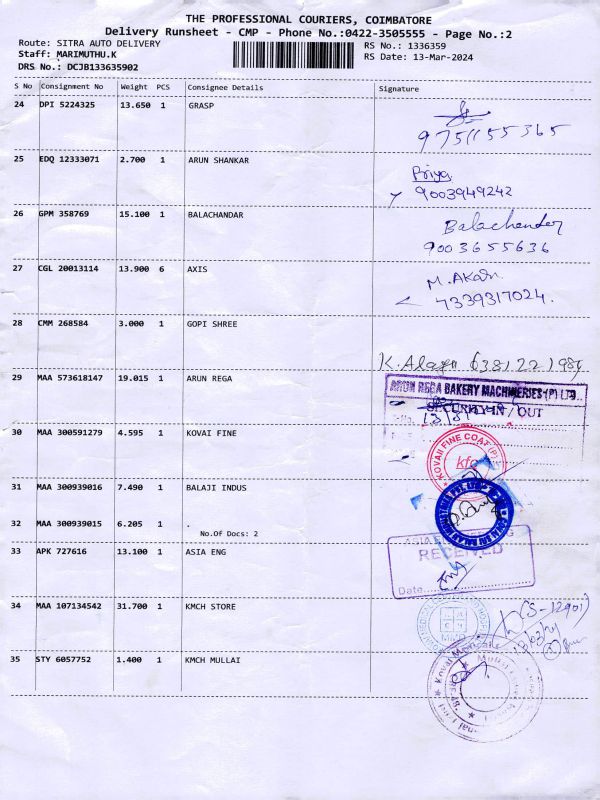 THE PROFESSIONAL COURIERS, COIMBATORE
Delivery Runsheet - CMP - Phone No.:0422-3505555 - Page No.:2
Route: SITRA AUTO DELIVERY
RS No.: 1336359
Staff: MARIMUTHU.K
RS Date: 13-Mar-2024
DRS No.: DCJB133635902
S No Consignment No Weight PCS Consignee Details Signature
24 DPI 5224325 13.650 1 GRASP
9751155365
25 EDQ 12333071 2.700 1 ARUN SHANKAR
Priya
9003949242
26 GPM 358769 15.100 1 BALACHANDAR
Balachander
9003655636
27 CGL 20013114 13.900 6 AXIS
M.Akash
7339317024.
28 CMM 268584 3.000 1 GOPI SHREE
29 MAA 573618147 19.015 1 ARUN REGA
ARUN REGA BAKERY MACHINERIES (P) LTD
SECURITY IN / OUT
30 MAA 300591279 4.595 1 KOVAI FINE
KOVAI FINE COAT (P)
kfc
31 MAA 300939016 7.490 1 BALAJI INDUS
32 MAA 300939015 6.205 1 .
No.Of Docs: 2
33 APK 727616 13.100 1 ASIA ENG
RECEIVED
Date
34 MAA 107134542 31.700 1 KMCH STORE
(S-12901)
35 STY 6057752 1.400 1 KMCH MULLAI